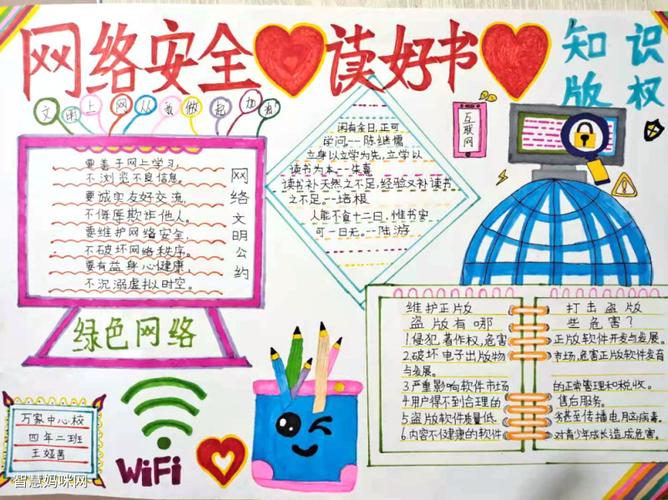 网络安全 读好书
知识
版权
文明上网从我做起加油
要善于网上学习,
不浏览不良信息。
要诚实友好交流,
不侮辱欺诈他人。
要维护网络安全,
不破坏网络秩序。
要有益身心健康,
不沉溺虚拟时空。
网络文明公约
绿色网络
闲有余日,正可
学问--陈继儒
立身以立学为先,立学以
读书为本--朱熹
读书补天然之不足,经验又补读书
之不足。--培根
人能不食十二日,惟书安
可一日无。--陆游
互联网
维护正版 打击盗版
盗版有哪些危害?
1.侵犯著作权,危害正版软件开发与发展。
2.破坏电子出版物市场,危害正版软件发育
与发展。
3.严重影响软件市场的正常管理和税收。
4.用户得不到合理的售后服务。
5.盗版软件质量低,
6.内容不健康的软件对青少年成长造成危害。
万家中心校
四年二班
WiFi
智慧妈咪网